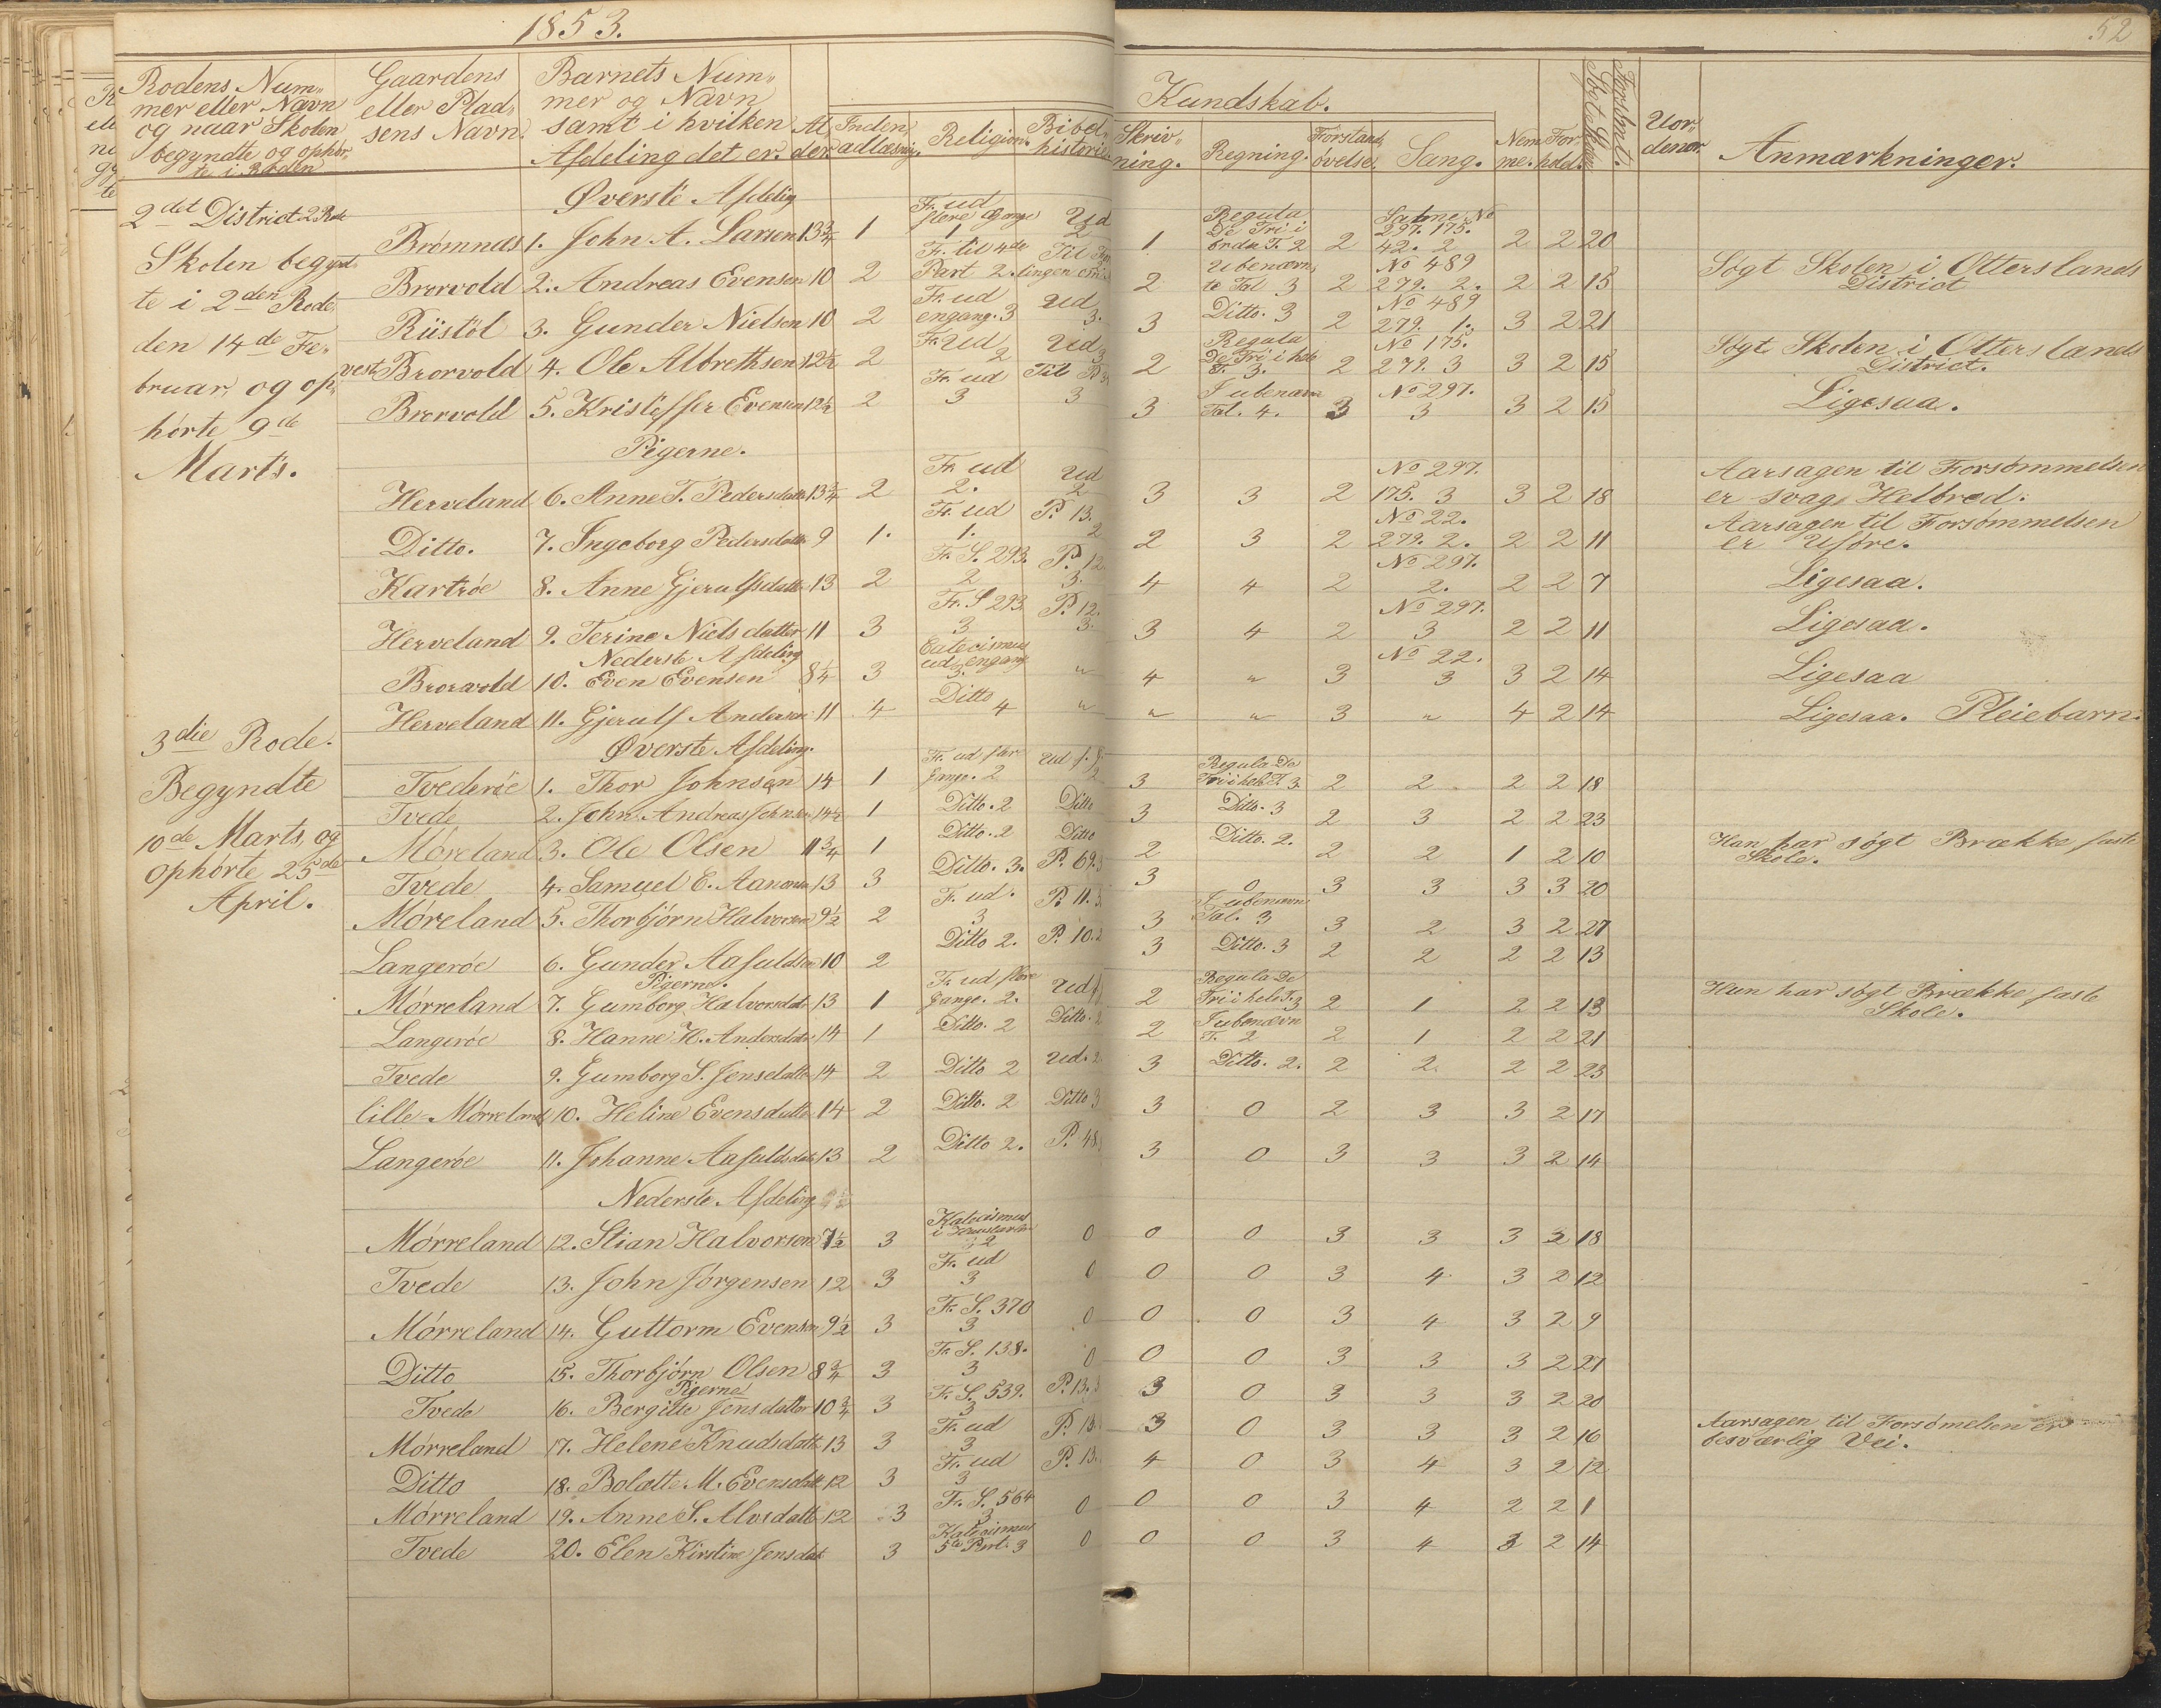 1853.
52
Rodens Num- Gaardens Barnets Num-
mer eller Navn eller Plad- mer og Navn Kundskab.
og naar Skolen sens Navn. samt i hvilken Al- Inden- Religion. Bibel- Skriv- Regning. Forstands Sang. Nem- For- Søgte Skolen Forsømt. Uor-
begyndte og ophør- Afdeling det er. der. adlæsning. historie ning. øvelse. me. hold. dener. Anmærkninger.
te i Roden
2det District 2 Rode
Skolen begynd-
te i 2den Rode
den 14de Fe-
bruar, og op-
hørte 9de
Marts.
Øverste Afdeling
Brømnes 1. John A. Larsen 13 3/4 1 Fr. ud flere Gange 1 Ud 2 1 Regula De Tri i brdn T. 2 2 Salme No 297. 175. 42. 2 2 2 20
Brorvold 2. Andreas Evensen 10 2 Fr. til 4de Part 2. 2 Ubenævn te Tal 3 2 No 489 279. 2. 2 2 15 Søgt Skolen i Otterslands District
Riistöl 3. Gunder Nielsen 10 2 Fr. ud engang. 3 Ud 3. 3 Ditto. 3 2 No 489 279. 1. 3 2 21
vest Brorvold 4. Ole Albrethsen 12 1/2 2 Fr. ud 2 Ud 3 2 Regula De Tri i hele T. 3. 2 No 175. 279. 3 3 2 15 Søgt Skolen i Otterslands District.
Brorvold 5. Kristoffer Evensen 12 1/2 2 Fr. ud 3 3 3 I ubenævn Tal. 4. 3 No 297. 3 3 2 15 Ligesaa.
Pigerne.
Herveland 6. Anne T. Pedersdatter 13 3/4 2 Fr. ud 2. Ud 2 3 3 2 No 297. 175. 3 3 2 18 Aarsagen til Forsømmelsen er svag Helbred.
Ditto. 7. Ingeborg Pedersdatter 9 1. Fr. ud 1. P. 13. 2 2 3 2 No 22. 279. 2. 2 2 11 Aarsagen til Forsømmelsen er Uføre.
Kartröe 8. Anne Gjerulfsdatter 13 2 Fr. S. 293. 2 P. 12. 3. 4 4 2 No 297. 2. 2 2 7 Ligesaa.
Herveland 9. Terine Nielsdatter 11 3 Fr. S 293 3 P. 12. 3. 3 4 2 No 297. 3 2 2 11 Ligesaa.
Nederste Afdeling
Brorvold 10. Even Evensen 8 1/4 3 Catecismus ud engang 3. " 4 " 3 No 22. 3 3 2 14 Ligesaa
Herveland 11. Gjerulf Andersen 11 4 Ditto 4 " " " 3 " 4 2 14 Ligesaa. Pleiebarn.
3die Rode.
Begyndte
10de Marts, og
ophørte 25de
April.
Øverste Afdeling.
Tvederöe 1. Thor Johnsen 14 1 Fr. ud flere Gange. 2 Ud f. G. 2 3 Regula De Tri i hele T. 3. 2 2 2 2 18
Tvede 2. John Andreas Johnsen 14 1/2 1 Ditto. 2 Ditto 3 Ditto. 3 2 3 2 2 23
Möreland 3. Ole Olsen 11 3/4 1 Ditto. 2 Ditto 2 Ditto. 2. 2 2 1 2 10 Han har søgt Brække faste Skole.
Tvede 4. Samuel E. Aanonsen 13 3 Ditto. 3. P. 69. 3 3 0 3 3 3 3 20
Möreland 5. Thorbjörn Halvorsen 9 1/2 2 Fr. ud. 3 P. 11. 3 3 I ubenævn Tal. 3 3 2 3 2 27
Langeröe 6. Gunder Aasuldsen 10 2 Ditto 2. P. 10. 2 3 Ditto. 3 2 2 2 2 13
Pigerne.
Mørreland 7. Gumborg Halvorsdatter 13 1 Fr. ud flere Gange. 2. Ud f. 2 Regula De Tri i hele T. 3 2 1 2 2 13 Hun har søgt Brække faste Skole.
Langeröe 8. Hanne H. Andersdatter 14 1 Ditto. 2 Ditto. 2 2 I ubenævn T. 2 2 1 2 2 21
Tvede 9. Gumborg S. Jensdatter 14 2 Ditto 2 Ud. 2. 3 Ditto. 2. 2 2. 2 2 23
lille Mørreland 10. Heline Evensdatter 14 2 Ditto. 2 Ditto 3 3 0 2 3 3 2 17
Langeröe 11. Johanne Aasuldsdatter 13 2 Ditto 2. P. 48. 3 0 3 3 3 2 14
Nederste Afdeling
Mørreland 12. Stian Halvorsen 7 1/2 3 Katecismus 2 0 0 0 3 3 3 3 18
Tvede 13. John Jørgensen 12 3 Fr. ud 3 0 0 0 3 4 3 2 12
Mørreland 14. Guttorm Evensen 9 1/2 3 Fr. S. 370 3 0 0 0 3 4 3 2 9
Ditto 15. Thorbjørn Olsen 8 3/4 3 Fr. S. 138. 3 0 0 0 3 3 3 2 27
Pigerne
Tvede 16. Bergitte Jensdatter 10 3/4 3 Fr. S. 539. 3 P. 13. 3 3 0 3 3 3 2 20
Mørreland 17. Helene Knudsdatter 13 3 Fr. ud 3 P. 13. 3 0 3 3 3 2 16 Aarsagen til Forsømelsen er besværlig Vei.
Ditto 18. Bolætte M. Evensdatter 12 3 Fr. ud 3 P. 13. 4 0 3 4 3 2 12
Mørreland 19. Anne S. Alvsdatter 12 3 Fr. S. 564 3 0 0 0 3 4 2 2 1
Tvede 20. Elen Kirstine Jensdat 3 Katecismus 5te Part. 3 0 0 0 3 4 3 2 14